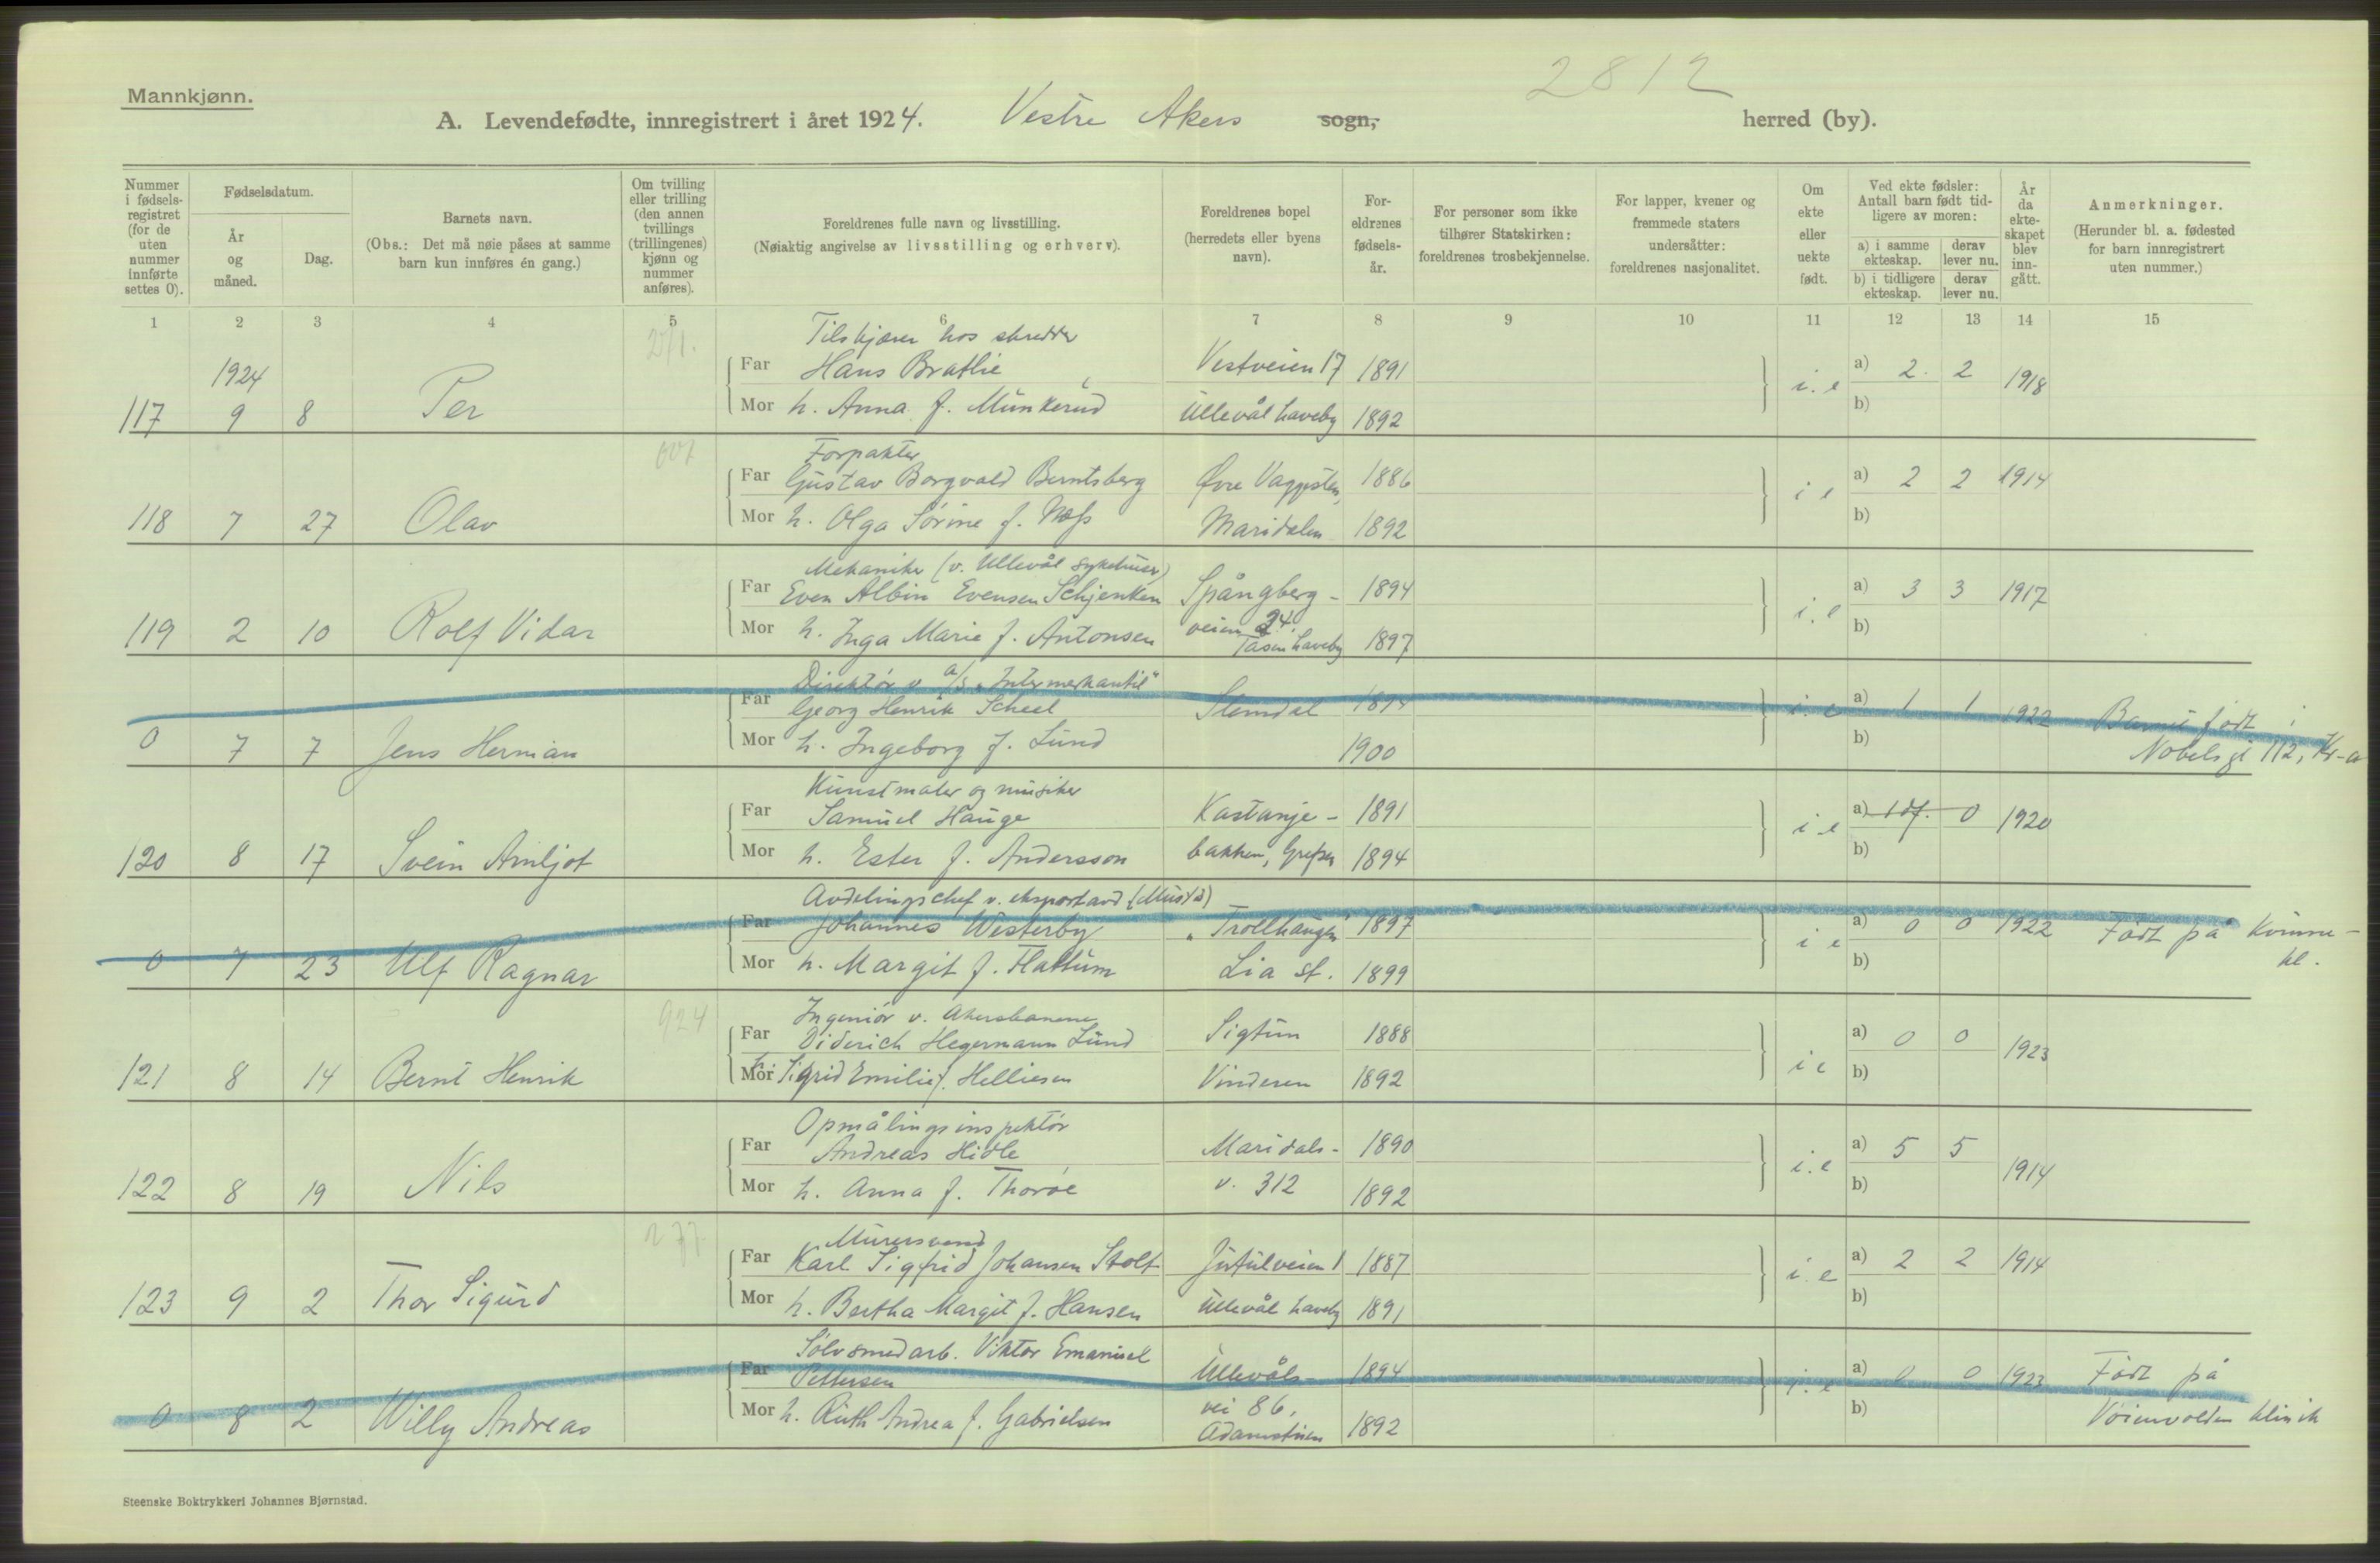 2812
Mannkjønn.
A. Levendefødte, innregistrert i året 1924. Vestre Akers sogn, herred (by).
Nummer i fødsels-registret (for de uten nummer innførte settes 0).
Fødselsdatum.
År og måned.
Dag.
Barnets navn.
(Obs.: Det må nøie påses at samme barn kun innføres én gang.)
Om tvilling eller trilling (den annen tvillings (trillingenes) kjønn og nummer anføres).
Foreldrenes fulle navn og livsstilling.
(Nøiaktig angivelse av livsstilling og erhverv).
Foreldrenes bopel (herredets eller byens navn).
For-eldrenes fødsels-år.
For personer som ikke tilhører Statskirken: foreldrenes trosbekjennelse.
For lapper, kvener og fremmede staters undersåtter: foreldrenes nasjonalitet.
Om ekte eller uekte født.
Ved ekte fødsler: Antall barn født tid-ligere av moren:
a) i samme ekteskap. derav lever nu.
b) i tidligere ekteskap. derav lever nu.
År da ekte-skapet blev inn-gått.
Anmerkninger.
(Herunder bl. a. fødested for barn innregistrert uten nummer.)
1 2 3 4 5 6 7 8 9 10 11 12 13 14 15
Tilskjærer hos skredder
1924 Far Hans Brathie Vestveien 17 1891 a) 2 2 1918
117 9 8 Per Mor h. Anna f. Munkerud Ullevål haveby 1892 i.e b)
Forpakter
Far Gustav Borgvald Berntsberg Øvre Vaggsten, 1886 a) 2 2 1914
118 7 27 Olav Mor h. Olga Sørine f. Næss Maridalen 1892 i e b)
Mekaniker (v. Ullevål sykehuser)
Far Even Albin Evensen Schjenken Spångberg- 1894 a) 3 3 1917
119 2 10 Rolf Vidar Mor h. Inga Marie f. Antonsen veien 24. Tåsen haveby 1897 i.e b)
Direktør v. A/S "Intermerkantil"
Far Georg Henrik Scheel Slemdal 1894 i.e a) 1 1 1922 Barnet født i
0 7 7 Jens Herman Mor h. Ingeborg f. Lund 1900 b) Nobelsgt 112, Kr-a
Kunstmaler og musiker
Far Samuel Hauge Kastanje- 1891 a) 1 df. 0 1920
120 8 17 Svein Arnljot Mor h. Ester f. Andersson bakken, Grefsen 1894 i e b)
Avdelingschef v. eksportavd (Mustad)
Far Johannes Westerby "Trollhaugen" 1897 a) 0 0 1922 Født på Kvinne-
0 7 23 Ulf Ragnar Mor h. Margit f. Flattum Lia st. 1899 i e b) kl.
924
Ingeniør v. Akersbanene
Far Diderich Hegermann Lund Sigtun 1888 a) 0 0 1923
121 8 14 Bernt Henrik Mor h. Sigrid Emilie f. Helliesen Vinderen 1892 i e b)
Opmålingsinspektør
Far Andreas Hidle Maridals- 1890 a) 5 5
122 8 19 Nils Mor h. Anna f. Thorøe v. 312 1892 i.e b) 1914
277
Murersvend
Far Karl Sigfrid Johansen Stolt Jutulveien 1 1887 a) 2 2 1914
123 9 2 Thor Sigurd Mor h. Bertha Margit f. Hansen Ullevål haveby 1891 i.e b)
Sølvsmedarb. Viktor Emanuel
Far Pettersen Ullevåls- 1894 i.e a) 0 0 1923 Født på
0 8 2 Willy Andreas Mor h. Ruth Andrea f. Gabrielsen vei 86, Adamstuen 1892 b) Voienvolden klinik
Steenske Boktrykkeri Johannes Bjørnstad.